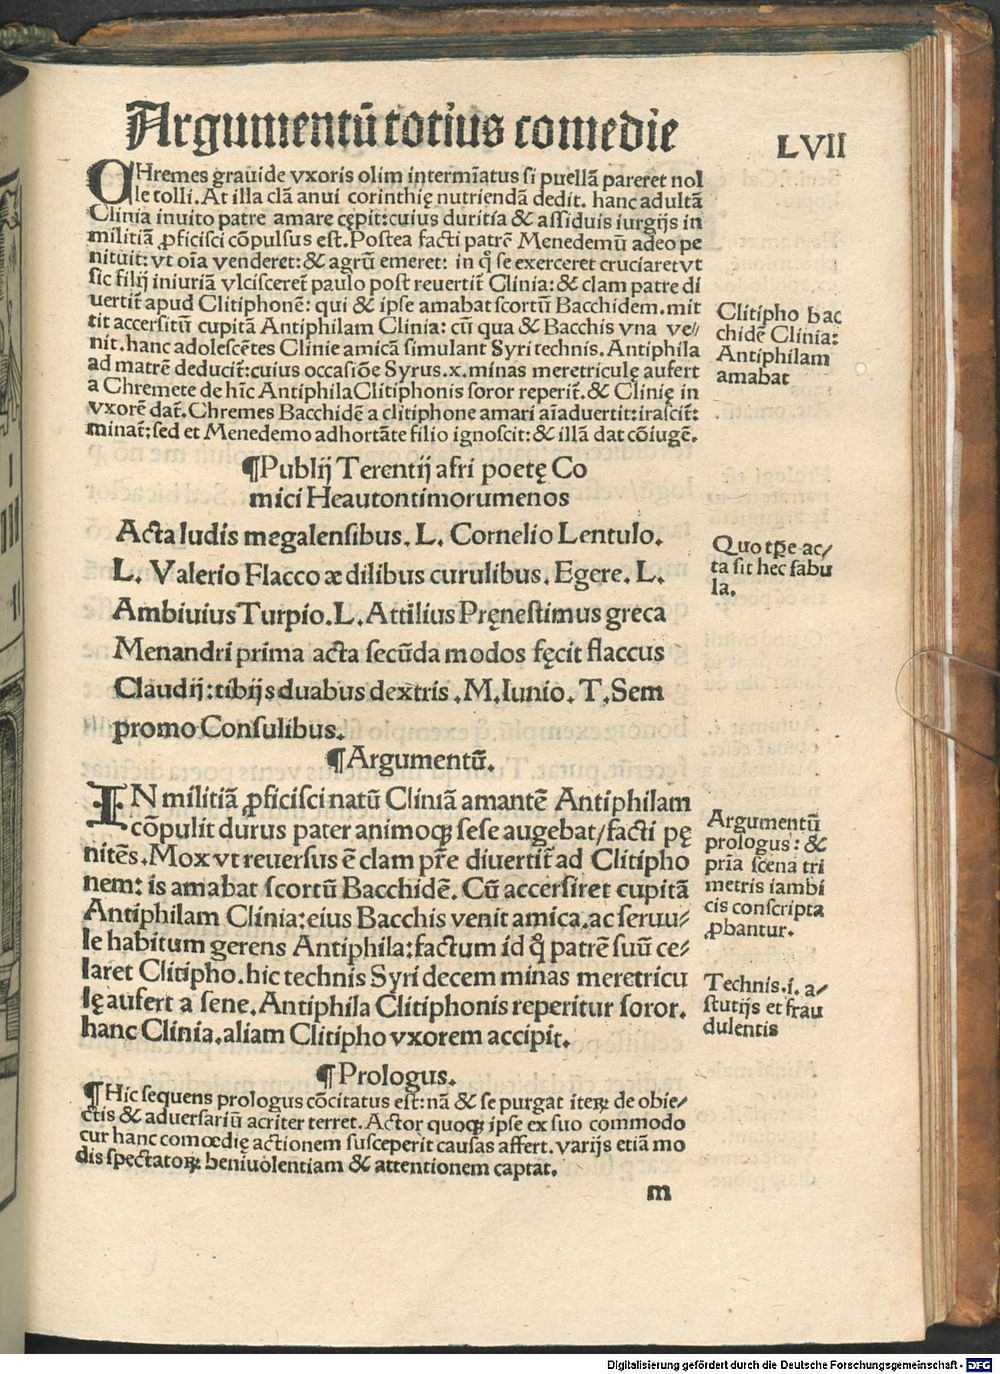 Argumentū totius comedie
LVII
CHremes grauide vxoris olim intermīatus si puellā pareret nol
le tolli. At illa clā anui corinthię nutriendā dedit. hanc adultā
Clinia inuito patre amare cępit: cuius duritia & assiduis iurgijs in
militiā ꝓficisci cōpulsus est. Postea facti patrē Menedemū adeo pe
nituit: vt oīa venderet: & agrū emeret: in q̊ se exerceret cruciaret vt
sic filij iniuriā vlcisceret̄ paulo post reuertit̄ Clinia: & clam patre di
uertit̄ apud Clitiphonē: qui & ipse amabat scortū Bacchidem. mit
tit accersitū cupitā Antiphilam Clinia: cū qua & Bacchis vna ve⸗
nit. hanc adolescētes Clinie amicā simulant Syri technis. Antiphila
ad matrē deducit̄: cuius occasiōe Syrus .x. minas meretriculę aufert
a Chremete de hīc Antiphila Clitiphonis soror reperit̄. & Clinię in
vxorē dat̄. Chremes Bacchidē a clitiphone amari aīaduertit: irascit̄:
minat̄: sed et Menedemo adhortāte filio ignoscit: & illā dat cōiugē.
Clitipho bac
chidē Clinia:
Antiphilam
amabat
¶Publij Terentij afri poetę Co
mici Heautontimorumenos
Acta ludis megalensibus. L. Cornelio Lentulo.
L. Valerio Flacco ædilibus curulibus. Egere. L.
Ambiuius Turpio. L. Attilius Pręnestimus greca
Menandri prima acta secūda modos fęcit flaccus
Claudij: tibijs duabus dextris. M. Iunio. T. Sem
promo Consulibus.
Quo tꝑe ac⸗
ta sit hec fabu
la.
¶Argumentū.
IN militiā ꝓficisci natū Cliniā amantē Antiphilam
cōpulit durus pater animoqȝ sese augebat/facti pę
nitēs. Mox vt reuersus ē clam pr̄e diuertit̄ ad Clitipho
nem: is amabat scortū Bacchidē. Cū accersiret cupitā
Antiphilam Clinia: eius Bacchis venit amica. ac seruu⸗
le habitum gerens Antiphila: factum id q̊ patrē suū ce⸗
laret Clitipho. hic technis Syri decem minas meretricu
lę aufert a sene. Antiphila Clitiphonis reperitur soror.
hanc Clinia. aliam Clitipho vxorem accipit.
Argumentū
prologus: &
prīa scena tri
metris iambi
cis conscripta
ꝓbantur.
Technis .i. a⸗
stutijs et frau
dulentis
¶Prologus.
¶Hic sequens prologus cōcitatus est: nā & se purgat itеꝝ de obie⸗
ctis & aduersariū acriter terret. Actor quoqȝ ipse ex suo commodo
cur hanc comœdię actionem susceperit causas affert. varijs etiā mo
dis spectatoꝝ beniuolentiam & attentionem captat.
m
Digitalisierung gefördert durch die Deutsche Forschungsgemeinschaft - DFG